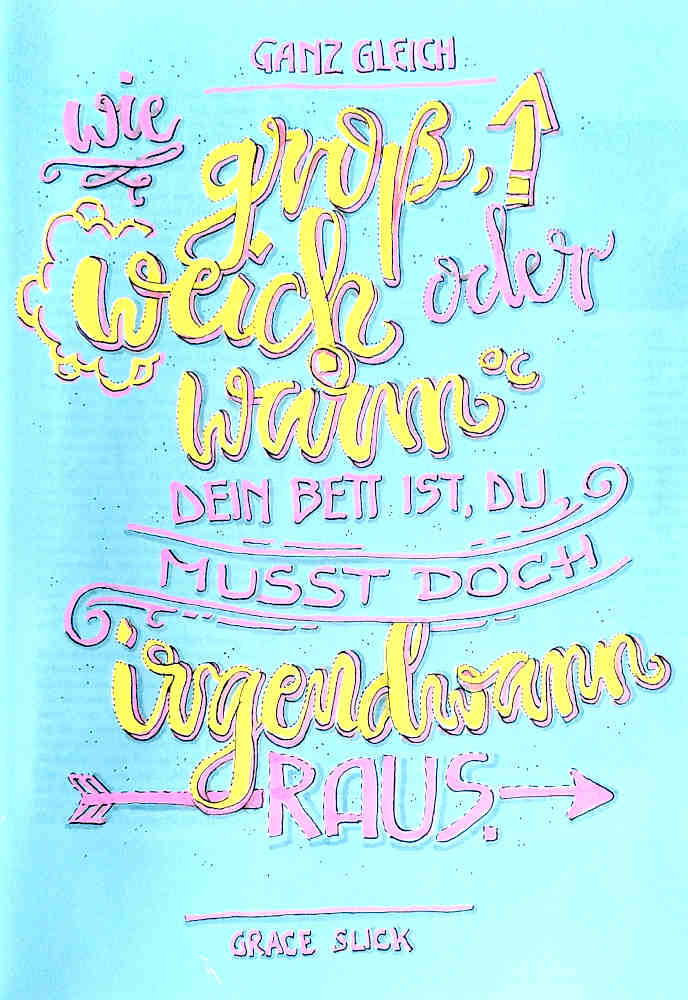 GANZ GLEICH
wie
groß,
weich oder
warm °C
DEIN BETT IST, DU
MUSST DOCH
irgendwann
RAUS.
GRACE SLICK